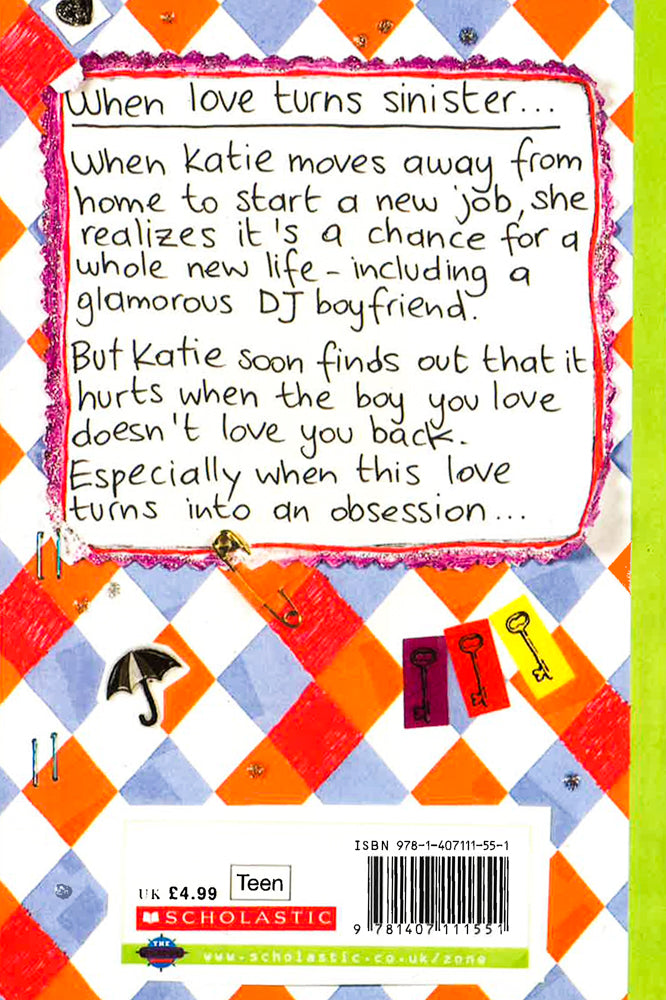 When love turns sinister...
When Katie moves away from
home to start a new job, she
realizes it's a chance for a
whole new life - including a
glamorous DJ boyfriend.
But Katie soon finds out that it
hurts when the boy you love
doesn't love you back.
Especially when this love
turns into an obsession...
ISBN 978-1-407111-55-1
UK £4.99
Teen
SCHOLASTIC
9 781407 111551
THE
www.scholastic.co.uk/zone